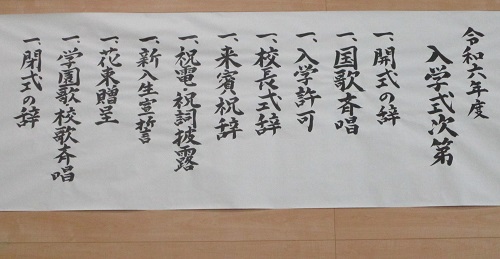 令和六年度
入学式次第
一、開式の辞
一、国歌斉唱
一、入学許可
一、校長式辞
一、来賓祝辞
一、祝電・祝詞披露
一、新入生宣誓
一、花束贈呈
一、学園歌・校歌斉唱
一、閉式の辞